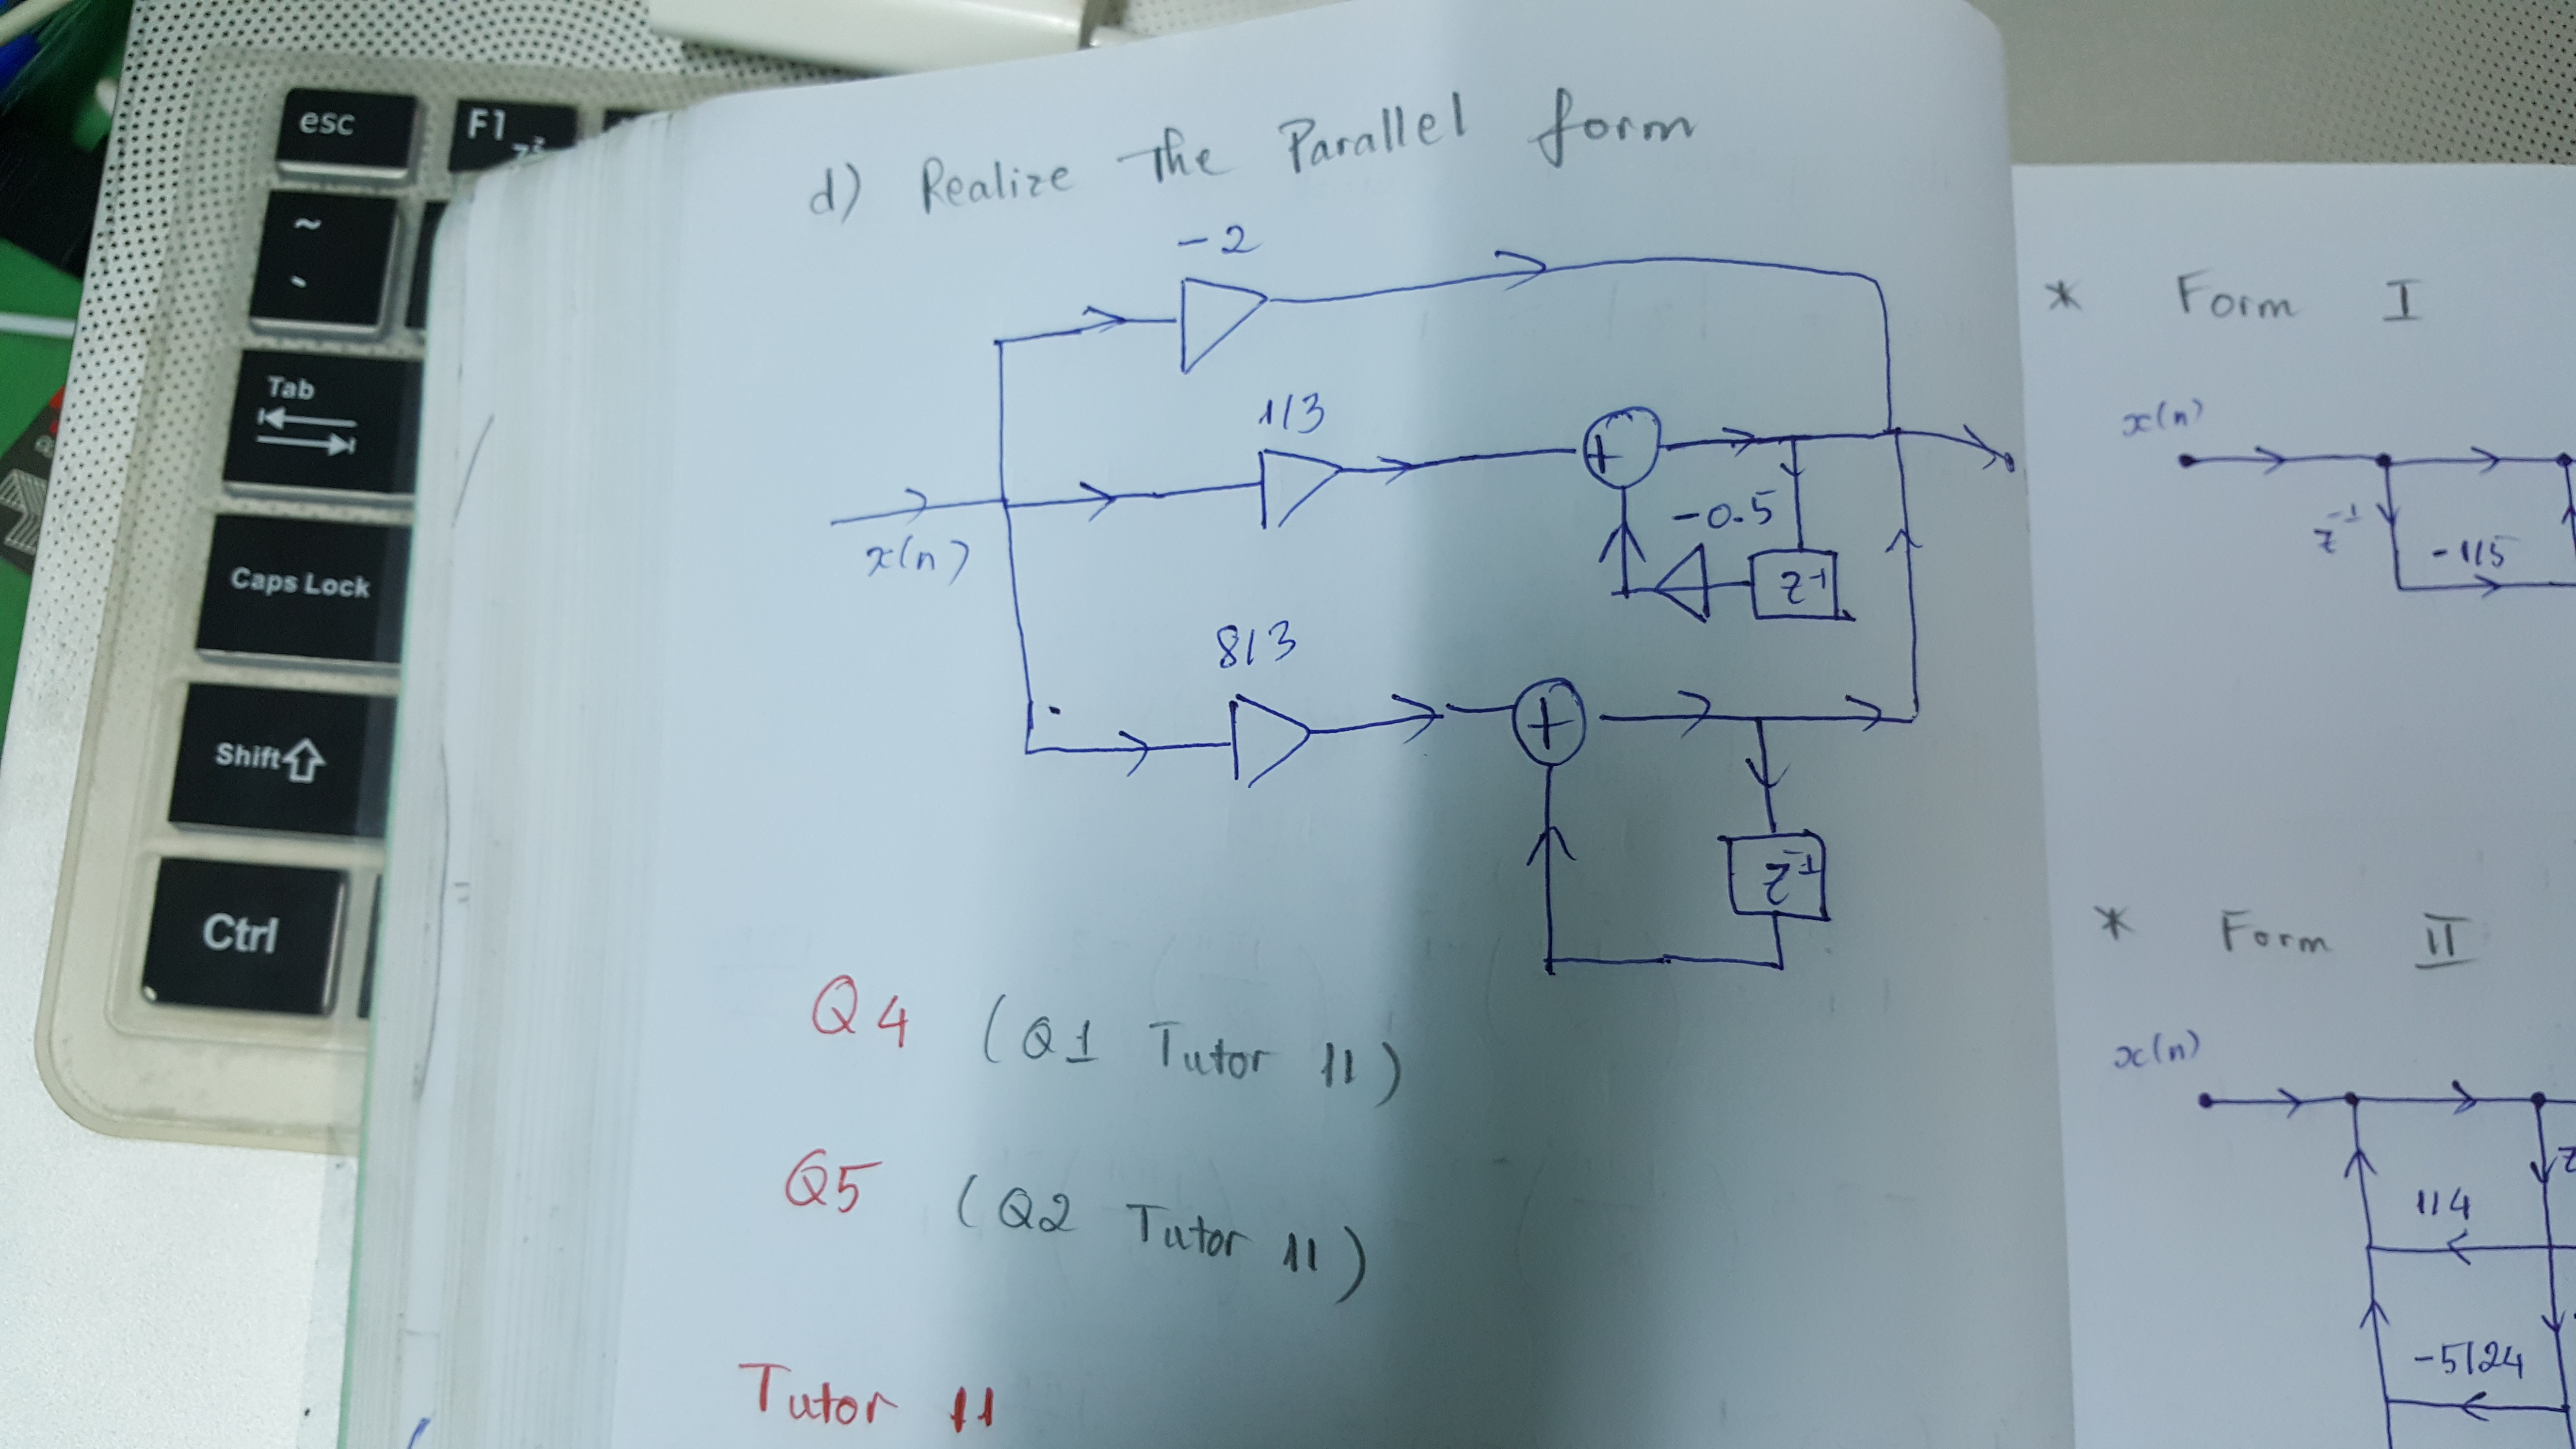 esc
F1
~
`
Tab
Caps Lock
Shift
Ctrl
d) Realize The Parallel form
-2
1/3
x(n)
-0.5
z-1
8/3
z-1
Q4 (Q1 Tutor 11)
Q5 (Q2 Tutor 11)
Tutor 11
* Form I
x(n)
z-1
-1/5
* Form II
x(n)
z
1/4
-5/24